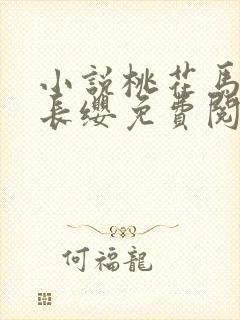 小説桃花馬
長纓免費閱
何福龍